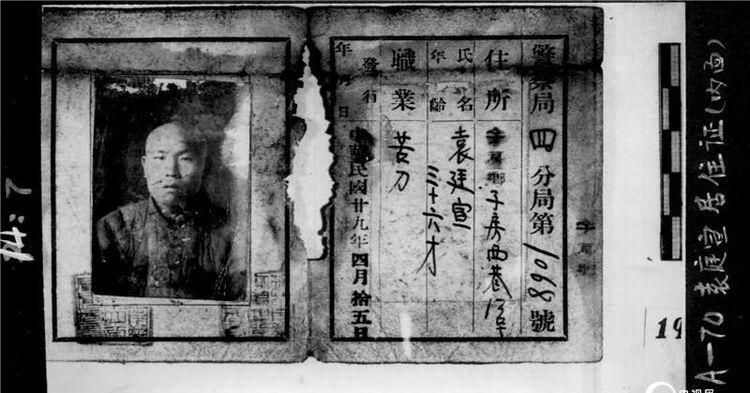 警察局四分局第8901號
住所
子房西巷
氏名
年齡
袁廷宣
三十六才
職業
苦力
年 月 日
發行
中華民國廿九年四月拾五日
14:7
19
A-70 袁庭宣居住证(内面)
央视网